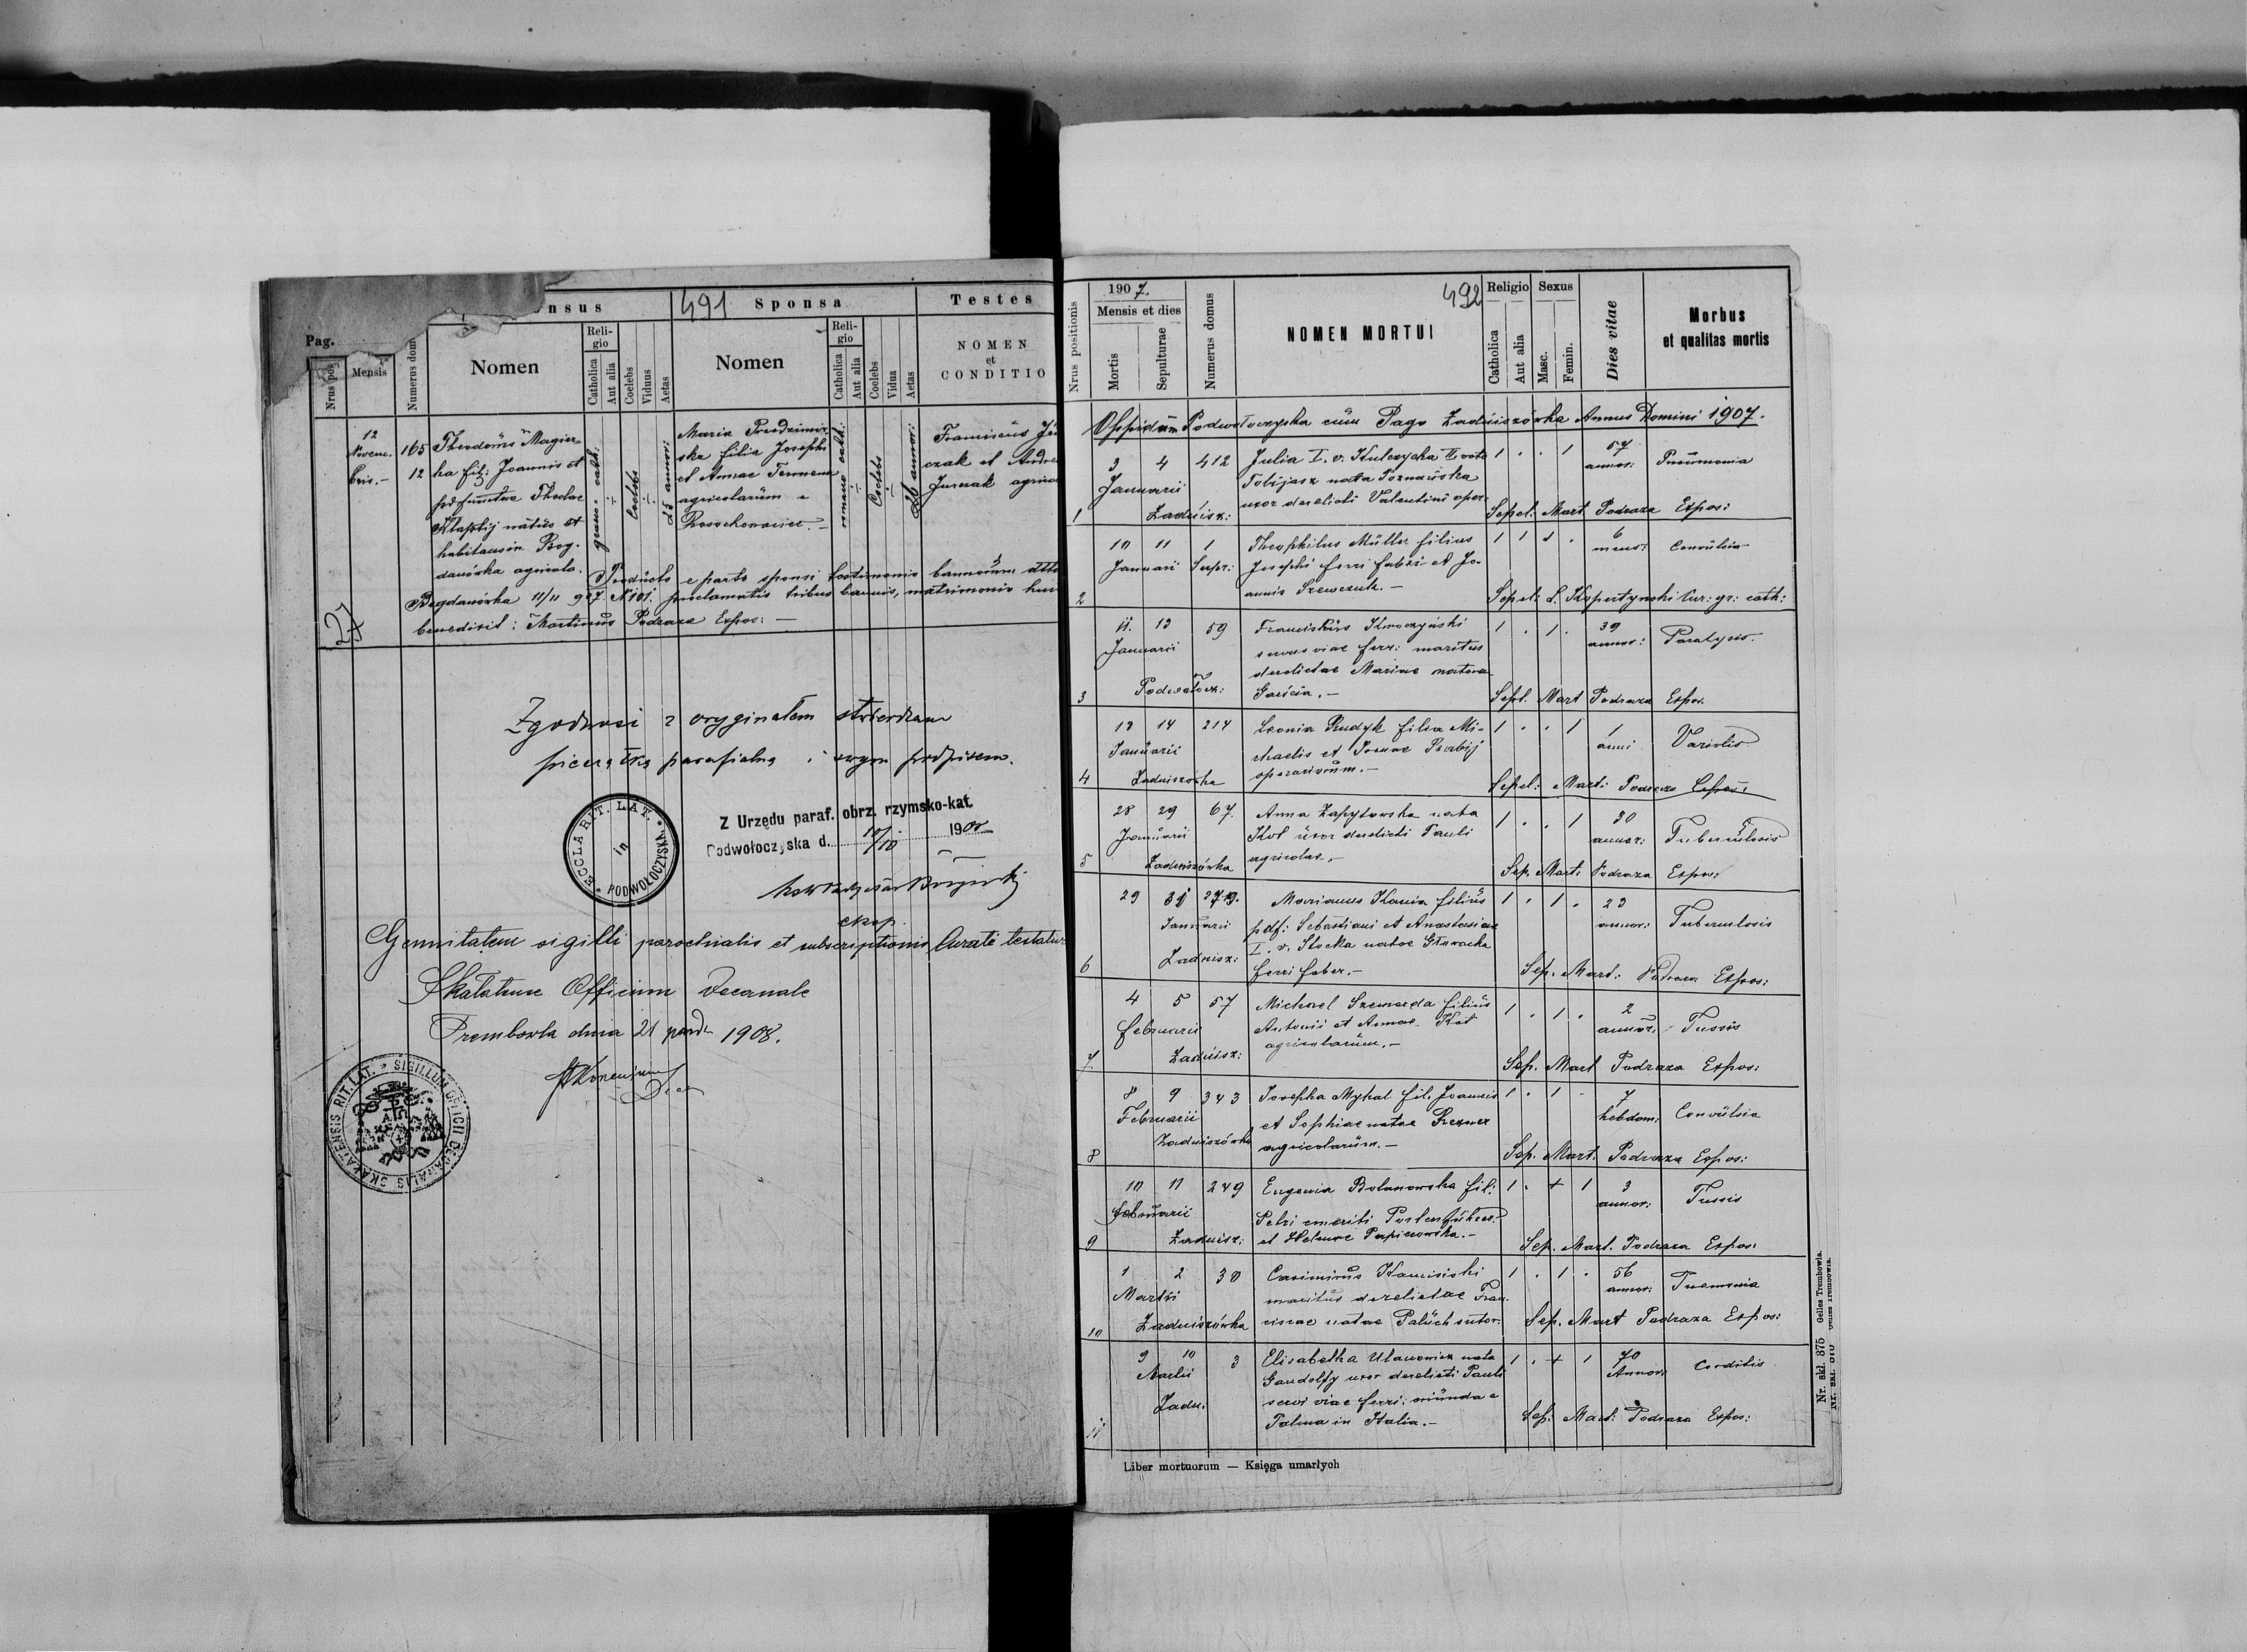 Pag.
491
Sponsa
Testes
Nrus pos
Mensis
Numerus dom
Nomen
Religio
Catholica
Aut alia
Coelebs
Viduus
Aetas
Nomen
Religio
Catholica
Aut alia
Coelebs
Vidua
Aetas
NOMEN
et
CONDITIO
12
Novem.
bris.-
165
12
Theodorus Magier-
ka fil: Joannis et
habitans in Bog-
danówka agricola.
graeco cath:
Coelebs
25 annor:
Maria
ska filia Josephi
et Annae
agricolarum e
romano cath:
Coelebs
26 annor:
Franciscus
czak et
Jurczak
e parte sponsi testimonio bannorum
Bogdanówka 11/11 907 N 101. proclamatis tribus bannis, matrimonio
benedixit: Martinus Podraza Expos: —
27
Zgodność z oryginałem stwierdzam
pieczątką parafialną i swym podpisem.
ECCLA RIT. LAT. * in PODWOŁOCZYSKA *
Z Urzędu paraf. obrz. rzymsko-kat.
Podwołoczyska d. 10/10 1908
eksp.
Genuitatem sigilli parochialis et subscriptionis Curati testatur
Skalatense Officium Decanale
Trembowla dnia 21 paźdz 1908.
SIGILLUM OFFICII DECANALIS SKAŁATENSIS RIT. LAT. *
492
Nrus positionis
1907.
Mensis et dies
Mortis
Sepulturae
Numerus domus
NOMEN MORTUI
Religio
Catholica
Aut alia
Sexus
Masc.
Femin.
Dies vitae
Morbus
et qualitas mortis
Oppidum Podwołoczyska cum Pago Zadniszówka Annus Domini 1907.
3 4 412 Julia I. v. Kulczycka II voto 1 . . 1 57 annor: Pneumonia
Januarii Tobijasz nata Poznańska
uxor derelicti Valentini oper:
1 Zadnisz: Sepel. Mart Podraza Expos:
10 11 1 Theophilus Müller filius 1 1 1 . 6 mens: Convulsia
Januarii Supr: Josephi ferri fabri et Jo-
annis Szewczuk.-
2 Sepel: L. Kopertynski Cur: gr: cath:
11. 13 59 Franciskus 1 . 1 . 39 annor: Paralysis.
Januarii servus viae ferr: maritus
derelictae Mariae natae
3 Podwołocz: Sepl. Mart Podraza Expos.
13 14 214 Leonia Rudyk filia Mi- 1 . . 1 1 anni Variolis
Januarii chaelis et
operariorum.-
4 Zadniszówka Sepel: Mart: Podraza Expos:
28 29 67. Anna Zapytowska nata 1 . . 1 30 annor: Tuberculosis
Januarii Kot uxor derelicti Pauli
agricolae.-
5 Zadniszówka Sep. Mart: Podraza Expos:
29 31 Marianus Kania filius 1 . 1 . 23 annor: Tuberculosis
Januarii pdf: Sebastiani et Anastasiae
I. v. Stocka natae Głowacka
ferri faber.-
6 Zadnisz: Sep. Mart: Podraza Expos:
4 5 57 Michael Szewerda filius 1 . 1 . 2 annor. Tussis
Februarii Antonii et Annae Kot
agricolarum.-
7. Zadnisz: Sep. Mart Podraza Expos:
8 9 343 Josepha Mykal fil. Joannis 1 . 1 . 7 hebdom: Convulsia
Februarii et Sophiae natae
Zadniszówka agricolarum.-
8 Sep. Mart. Podraza Expos:
10 11 249 Eugenia Bolanowska fil: 1 . + 1 3 annor: Tussis
Februarii Petri emeriti
et Helenae
9 Zadnisz: Sep. Mart. Podraza Expos:
1 2 30 Casimirus 1 . 1 . 56 annor: Pnemonia
Martii maritus derelictae Fran-
10 Zadniszówka ciscae natae Paluch sutor. Sep. Mart Podraza Expos:
9 10 3 Elisabetha Ulanowicz nata 1 . + 1 70 Annor: Corditis
Martii Gandolfy uxor derelicti Pauli
Zadn. servi viae ferri: oriunda e
11 Palma in Italia.- Sep. Mart: Podraza Expos:
Liber mortuorum — Księga umarłych
Nr. skł. 375 Gelles Trembowla.